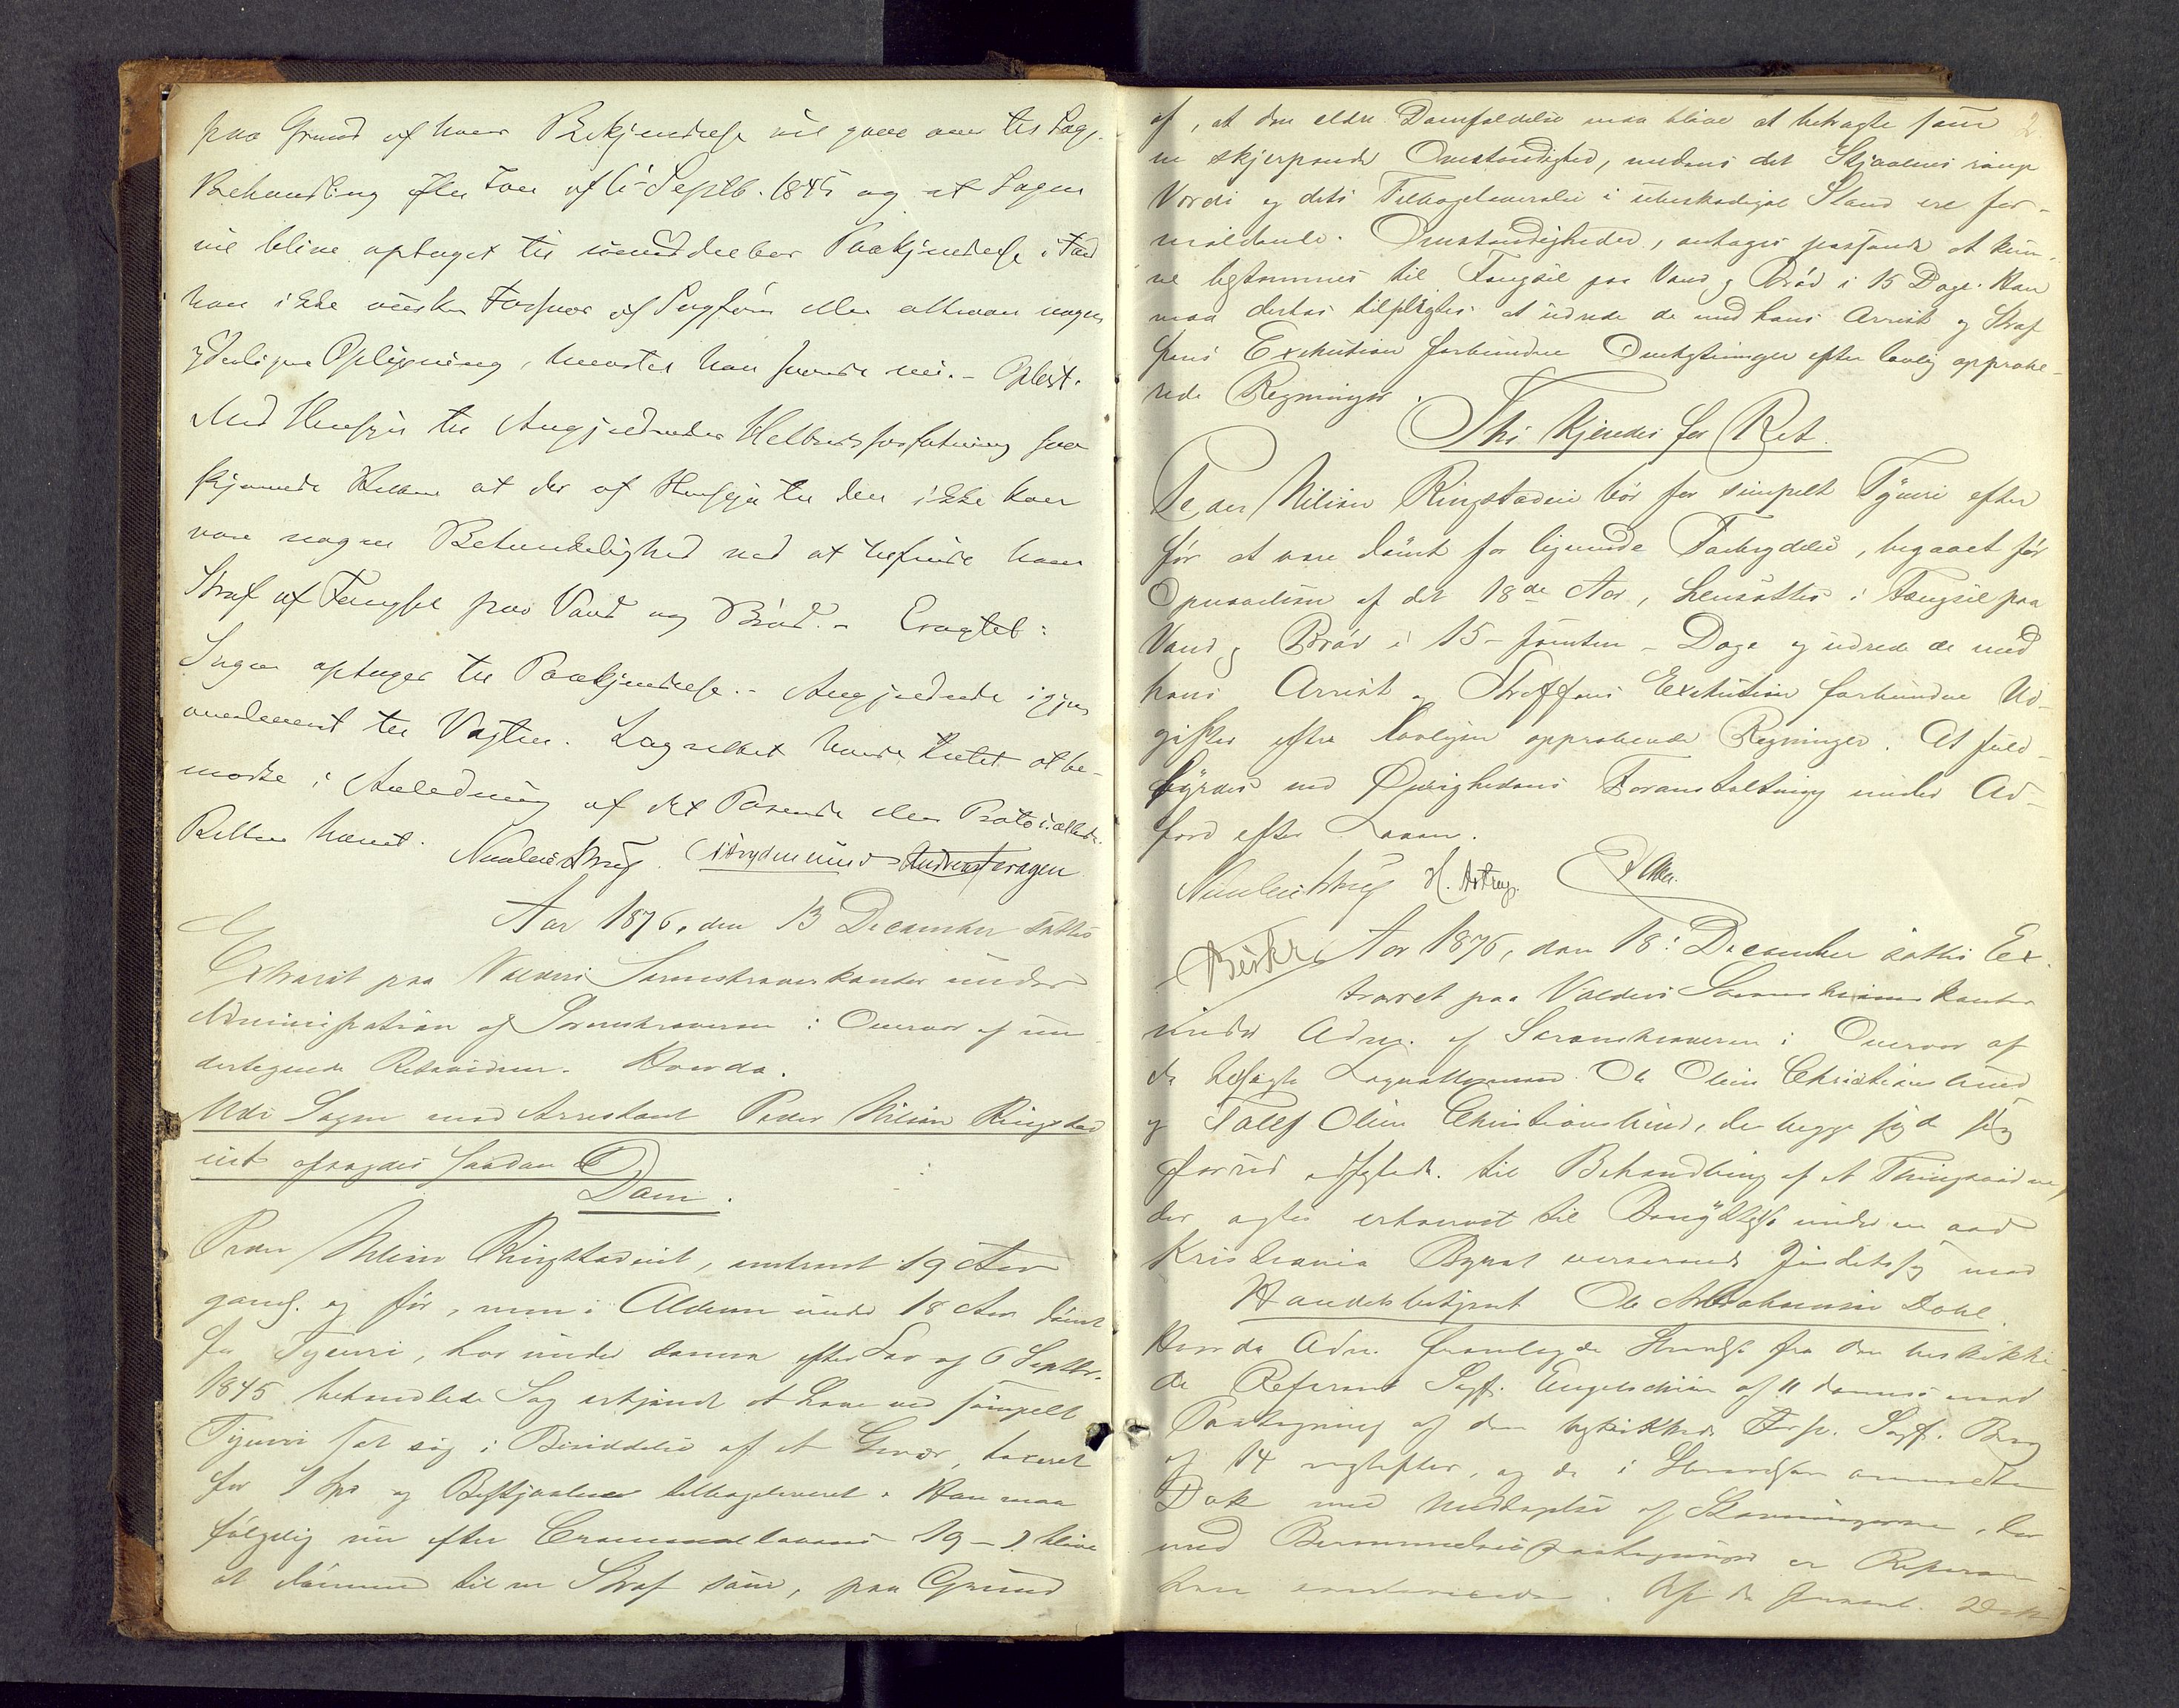 paa Grund af hans Bekjendelse vil gaae over til Sags
Behandling efter Lov af 6 Septb. 1845 og at Sagen
vil blive optaget til umiddelbar Paakjendelse ifald
han ikke ønsker Forsvar af Sagfører eller attraaer nogen
yderligere Oplysning, hvortil han svarede nei. - Oplæst.
Med Hensyn til Angjeldendes Helbredsforfatning fore
skjønnede Retten at der af Hensyn til den ikke kan
være nogen Betænkelighed ved at befinde ham
Straf af Fængsel paa Vand og Brød. - Eragtet:
Sagen optages til Paakjendelse. - Angjeldende igjen
overleveret til Vagten. Lagrettet havde Intet at be-
mærke i Anledning af det Passerede eller Protocollerede.
Retten hævet.
Aar 1876, den 13 December sattes
Extraret paa Valders Sorenskriverkontor under
Administration af Sorenskriveren i Overvær af un
dertegnede Retsvidner. Hvorda.
Udi Sagen mod Arrestant Peder Nilsen Ringstad
eiet afsagdes saadan
Dom.
Peder Nilsen Ringstadeiet, omtrent 19 Aar
gaml. og før, men i Alderen under 18 Aar dømt
for Tyveri, har under denne efter Lov af 6 Septbr.
1845 behandlede Sag erkjendt at have ved simpelt
Tyveri sat sig i Besiddelse af et Gevær, taxeret
for 1 Spd og Bestjaalne tilbageleveret. Han maa
følgelig nu efter Criminallovens 19 - 1 blive
at dømme til en Straf som, paa Grund
af, at den ældre Domfældelse maa blive at betragte som
en skjerpende Omstændighed, medens det Stjaalnes ringe
Værdi og dets Tilbageleverelse i ubeskadiget Stand ere for-
mildende Omstændigheder, antages passende at kun-
ne bestemmes til Fængsel paa Vand og Brød i 15 Dage. Han
maa derhos tilpligtes at udrede de med hans Arrest og Straf
fens Exekution forbundne Omkostninger efter lovlig approbe-
rede Regninger.
Thi kjendes for Ret.
Peder Nilsen Ringstadeie bør for simpelt Tyveri efter
før at være dømt for lignende Forbrydelse, begaaet før
Opnaaelsen af det 18de Aar, hensættes i Fængsel paa
Vand og Brød i 15 - femten - Dage og udrede de med
hans Arrest og Straffens Exekution forbundne Ud-
gifter efter lovligen approberede Regninger. At fuld-
byrdes ved Øvrighedens Foranstaltning under Ad-
færd efter Loven.
H. Astrup.
Aar 1876, den 18: December sattes Ex
traret paa Valders Sorenskriverkontor
under Adm. af Sorenskriveren i Overvær af
de befragte Lagrettesmænd Ole Olsen Christianslund
og Tollef Olsen Christianslund, der begge
forud edfæstede til Behandling af et Thingsvidne,
der agtes erhvervet til Benyttelse under en ved
Kristiania Byret verserende Justitssag mod
Handelsbetjent Ole Abrahamsen Dahl.
Hvorda Adm. fremlagde Skrivelse fra den beskikke-
de Referent Sagf. Engelschiøn af 11 dennes med
Paategning af den beskikkede Forsv. Sagf. Berg
af 14 næstefter, og de i Skrivelsen anmeldte
Dok med Undtagelse af Stævningerne, der
med Berammelsespaategninger er